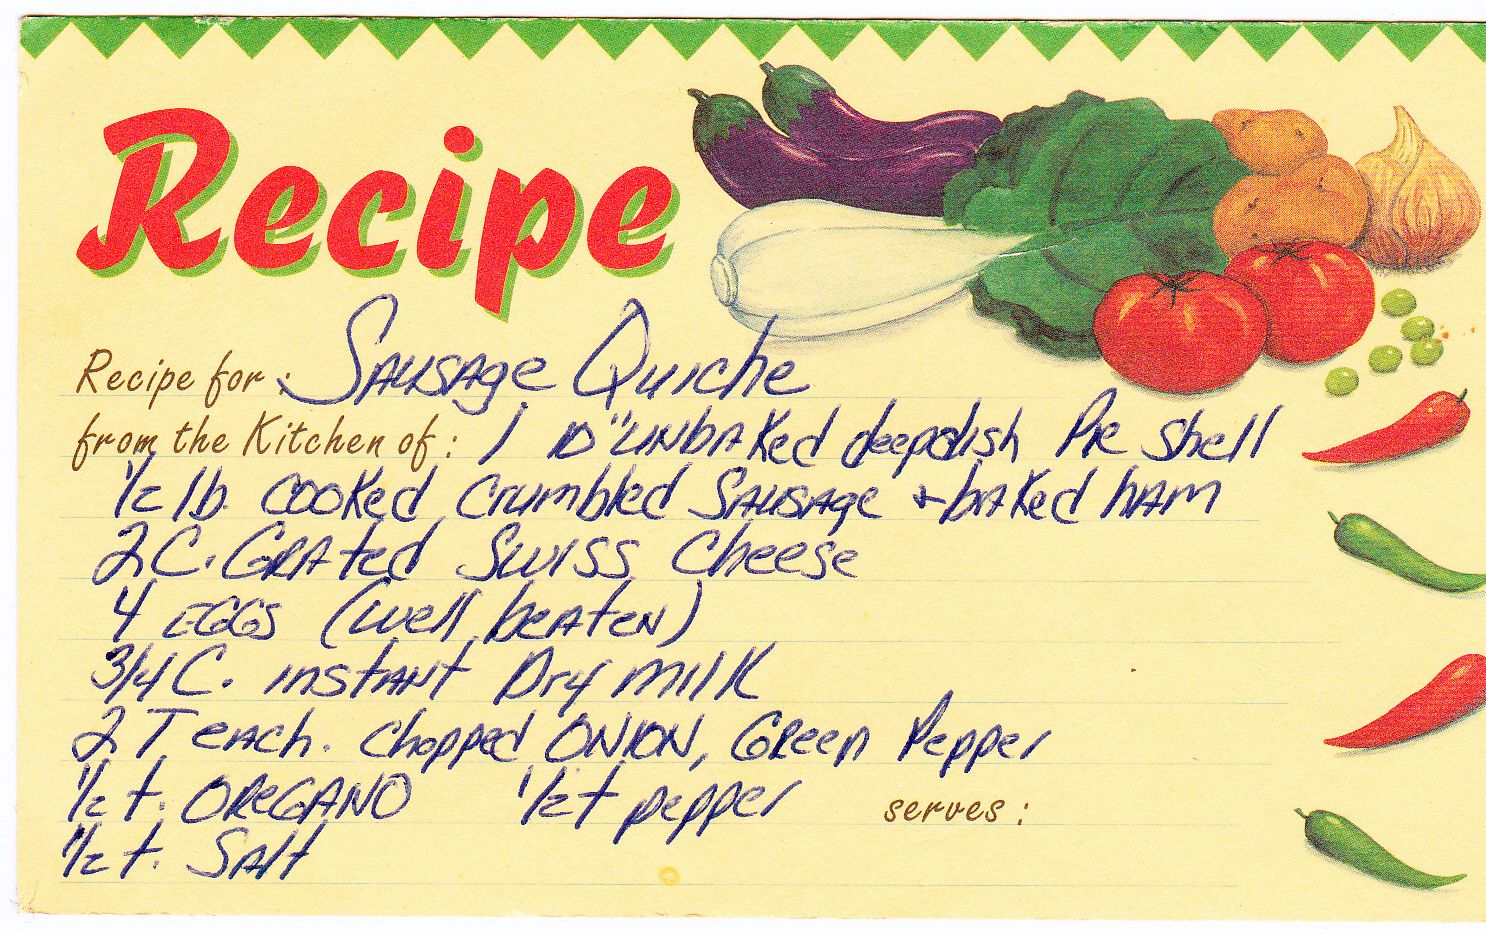 Recipe
Recipe for: Sausage Quiche
from the Kitchen of: 1 10" unbaked deepdish Pie Shell
1/2 lb. cooked crumbled Sausage + baked ham
2 C. Grated Swiss Cheese
4 EGGS (well beaten)
3/4 C. instant Dry milk
2 T each. chopped ONION, Green Pepper
1/2 t. OREGANO 1/2 t pepper serves:
1/2 t. Salt